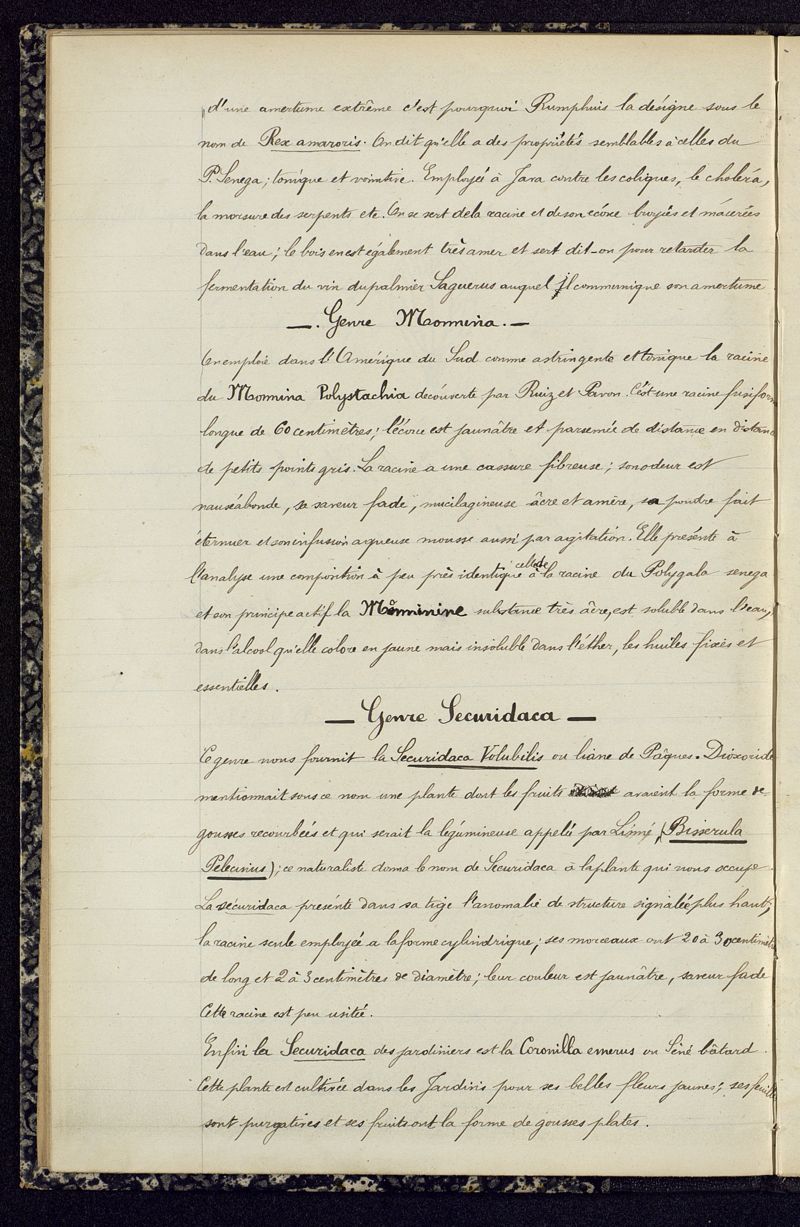 d'une amertume extrême c'est pourquoi Rumphuis la désigne sous le
nom de Rex amaroris. On dit qu'elle a des propriétés semblables à celles du
P. Senega ; tonique et vomitive. Employée à Java contre les coliques, le choléra,
la morsure des serpents etc. On se sert de la racine et de son écorce broyées et macérées
dans l'eau ; le bois en est également très amer et sert dit-on pour retarder la
fermentation du vin du palmier Saguerus auquel il communique son amertume
— . Genre Monnina . —
On emploie dans l'Amérique du Sud comme astringente et tonique la racine
du Monnina Polystachia découverte par Ruiz et Pavon. C'est une racine fusiform
longue de 60 centimètres ; l'écorce est jaunâtre et parsemée de distance en distanc
de petits points gris. La racine a une cassure fibreuse ; son odeur est
nauséabonde, sa saveur fade, mucilagineuse âcre et amère, sa poudre fait
éternuer et son infusion aqueuse mousse aussi par agitation. Elle présente à
l'analyse une composition à peu près identique à celle de la racine du Polygala senega
et son principe actif la Monninine substance très âcre, est soluble dans l'eau,
dans l'alcool qu'elle colore en jaune mais insoluble dans l'éther, les huiles fixes et
essentielles .
— Genre Securidaca —
Ce genre nous fournit la Securidaca Volubilis ou liane de Pâques. Dioscoride
mentionnait sous ce nom une plante dont les fruits avaient la forme de
gousses recourbées et qui serait la légumineuse appelée par Linné (Bisserula
Pelecinus) ; ce naturaliste donna le nom de Securidaca à la plante qui nous occupe
La sécuridaca présente dans sa tige l'anomalie de structure signalée plus haut ;
la racine seule employée a la forme cylindrique ; ses morceaux ont 20 à 30 centimèt
de long et 2 à 3 centimètres de diamètre ; leur couleur est jaunâtre, saveur fade
Cette racine est peu usitée .
Enfin la Securidaca des jardiniers est la Coronilla emerus ou Séné bâtard .
Cette plante est cultivée dans les Jardins pour ses belles fleurs jaunes ; ses feuille
sont purgatives et ses fruits ont la forme de gousses plates .